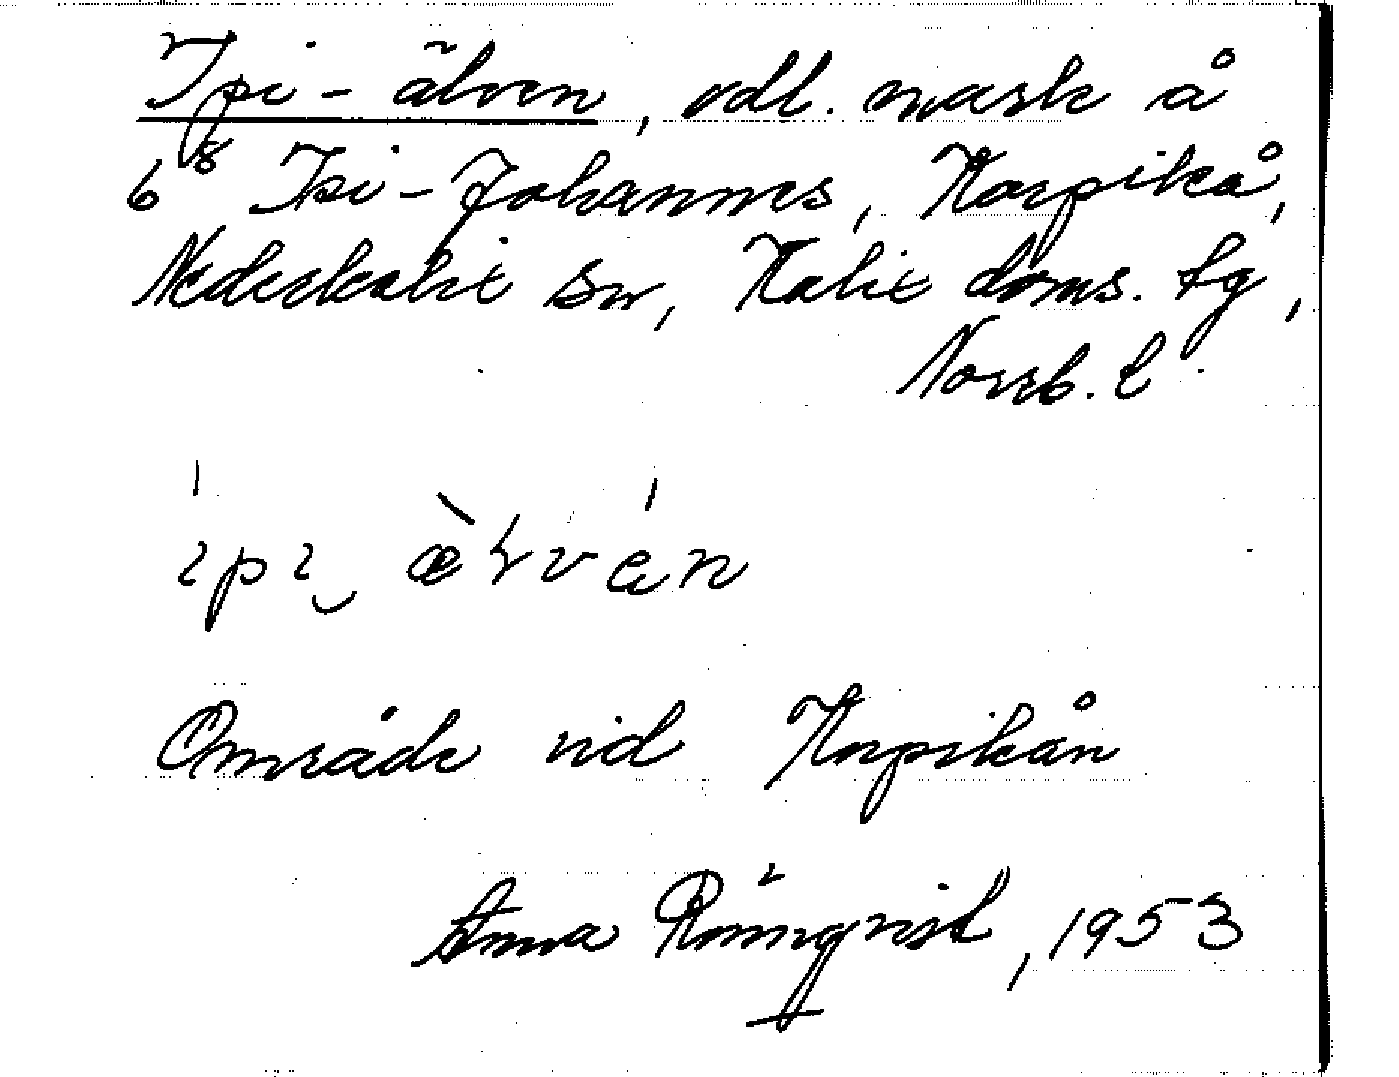 Ipi-älven, odl. mark å
6⁸ Ipi-Johannes, Korpikå,
Nederkalix sn, Kalix doms. lg,
Norrb. l.
ipi älven
Område vid Korpikån
Anna Römqvist, 1953